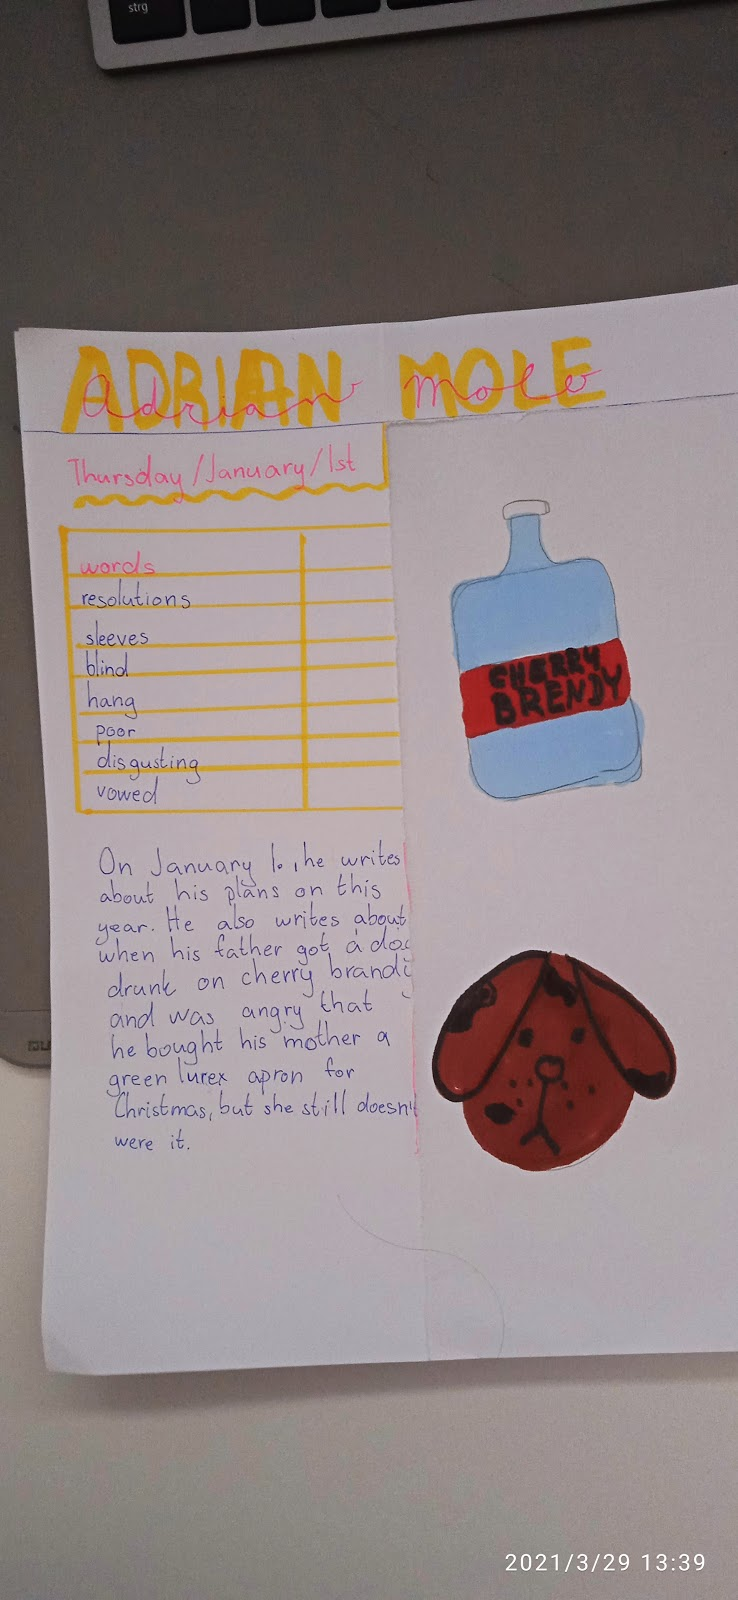 strg
ADRIAN MOLE
Adrian Mole
Thursday/January/1st
words
resolutions
sleeves
blind
hang
poor
disgusting
vowed
CHERRY
BRENDY
On January 1., he writes
about his plans on this
year. He also writes about
when his father got a dog
drunk on cherry brandy
and was angry that
he bought his mother a
green lurex apron for
Christmas, but she still doesn't
were it.
2021/3/29 13:39